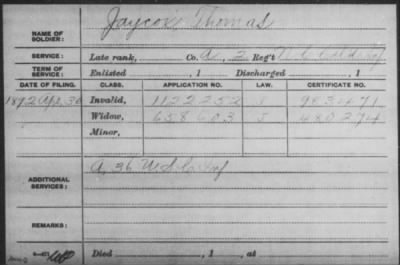 NAME OF SOLDIER: Jaycox Thomas
SERVICE: Late rank, Co. A, 2 Reg't U.S. Cold Inf
TERM OF SERVICE: Enlisted , 1 Discharged , 1
DATE OF FILING. CLASS. APPLICATION NO. LAW. CERTIFICATE NO.
1892 Apr. 30 Invalid, 1122252 J 983471
Widow, 658603 J 480274
Minor,
ADDITIONAL SERVICES: A, 36 U.S.C. Inf
REMARKS:
Died , 1 , at